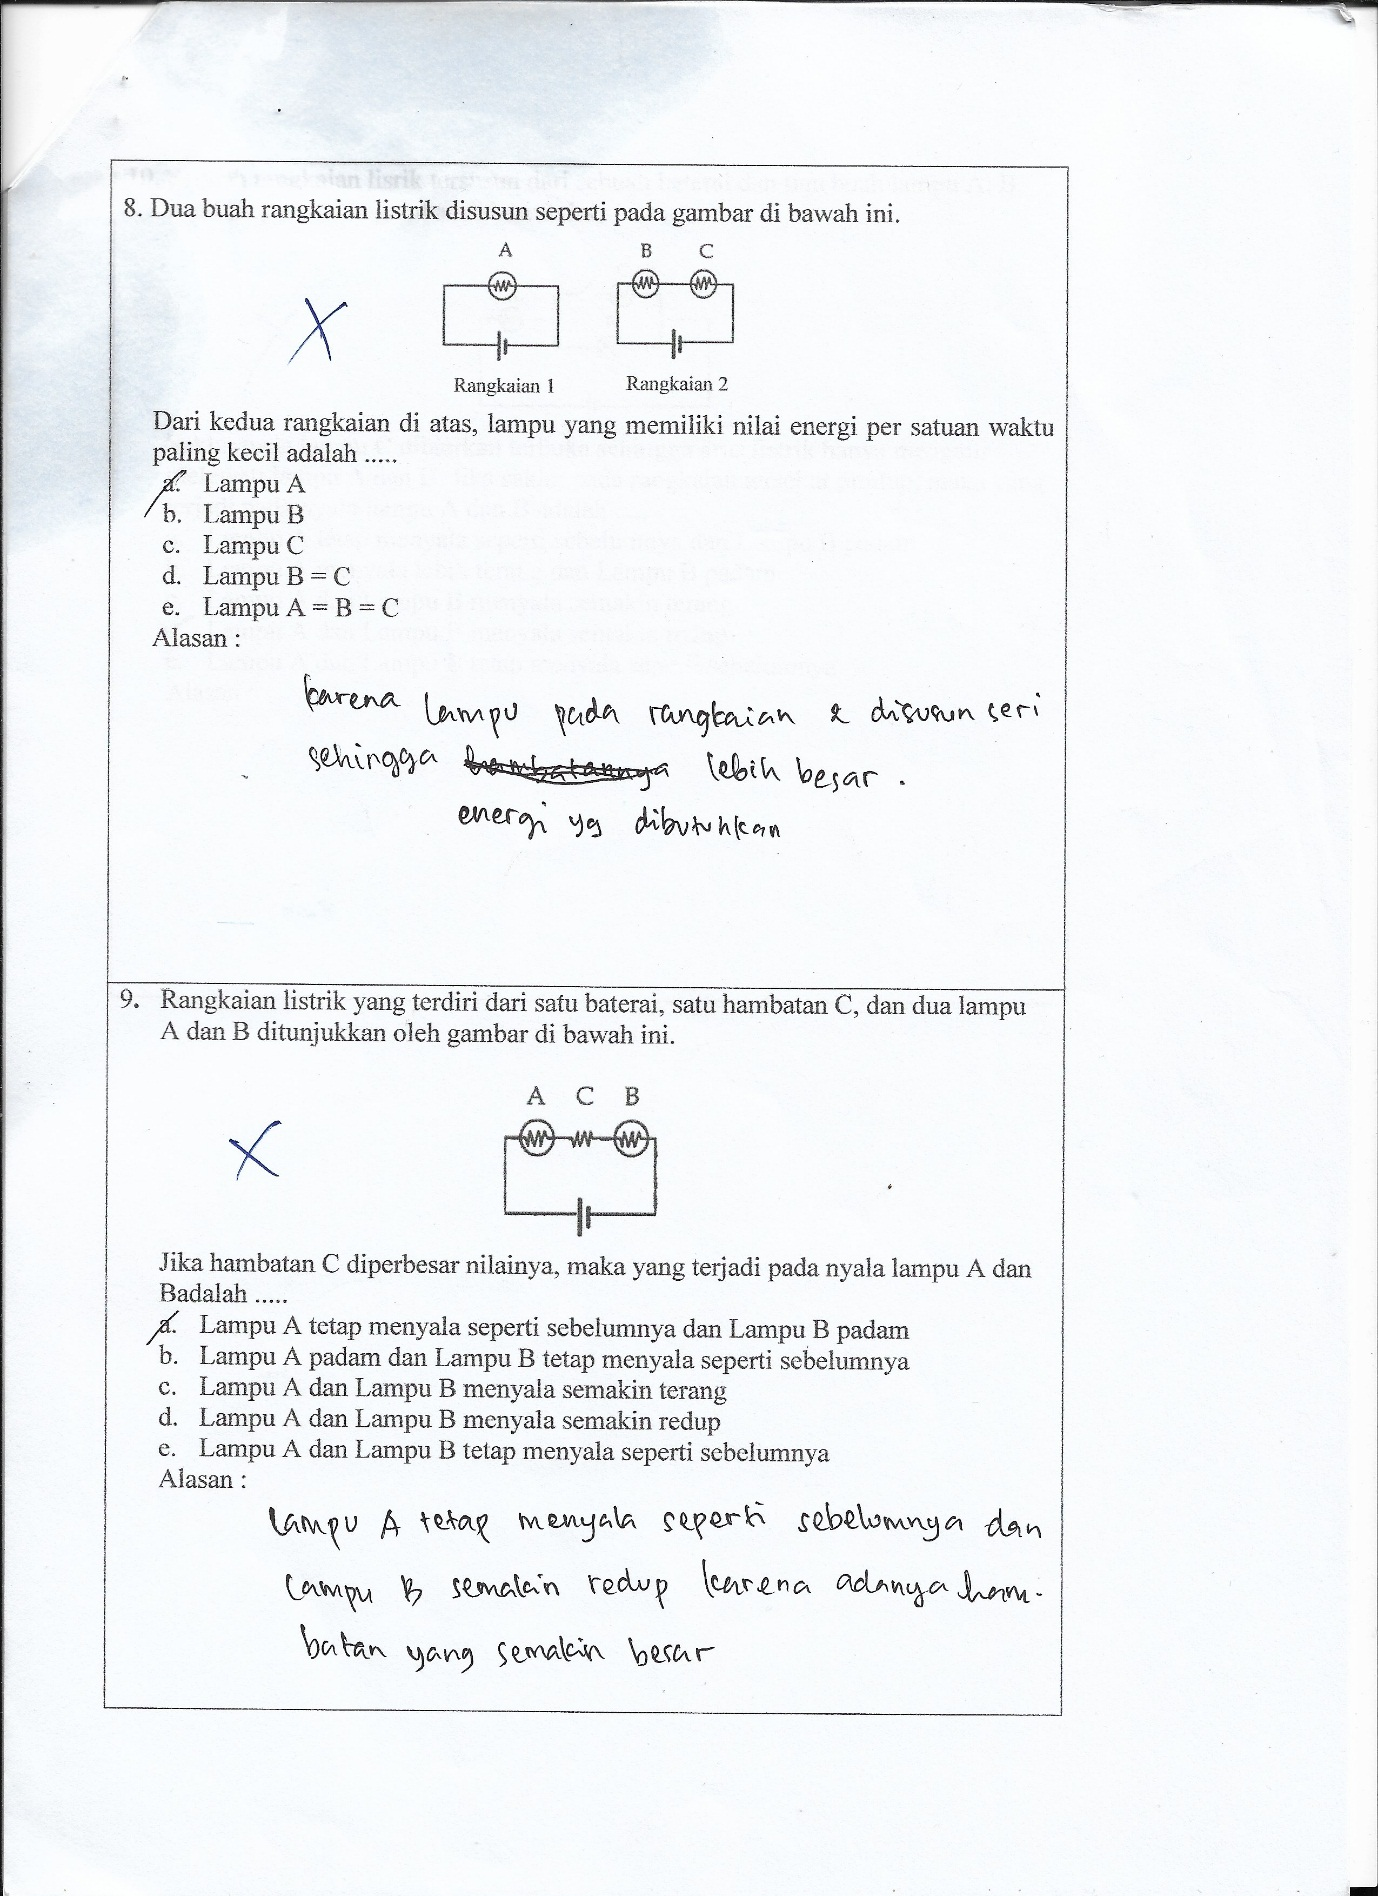 8. Dua buah rangkaian listrik disusun seperti pada gambar di bawah ini.
A B C
Rangkaian 1 Rangkaian 2
Dari kedua rangkaian di atas, lampu yang memiliki nilai energi per satuan waktu
paling kecil adalah .....
a. Lampu A
b. Lampu B
c. Lampu C
d. Lampu B = C
e. Lampu A = B = C
Alasan :
karena lampu pada rangkaian 2 disusun seri
sehingga hambatannya lebih besar .
energi yg dibutuhkan
9. Rangkaian listrik yang terdiri dari satu baterai, satu hambatan C, dan dua lampu
A dan B ditunjukkan oleh gambar di bawah ini.
A C B
Jika hambatan C diperbesar nilainya, maka yang terjadi pada nyala lampu A dan
Badalah .....
a. Lampu A tetap menyala seperti sebelumnya dan Lampu B padam
b. Lampu A padam dan Lampu B tetap menyala seperti sebelumnya
c. Lampu A dan Lampu B menyala semakin terang
d. Lampu A dan Lampu B menyala semakin redup
e. Lampu A dan Lampu B tetap menyala seperti sebelumnya
Alasan :
Lampu A tetap menyala seperti sebelumnya dan
Lampu B semakin redup karena adanya ham-
batan yang semakin besar